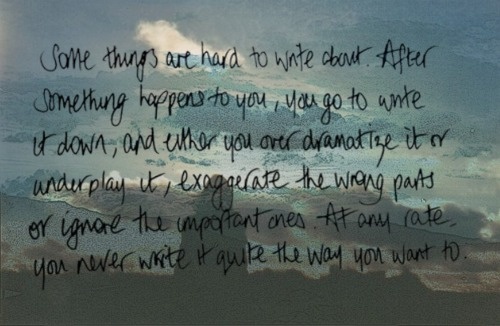 Some things are hard to write about. After
something happens to you, you go to write
it down, and either you over dramatize it or
underplay it, exaggerate the wrong parts
or ignore the important ones. At any rate,
you never write it quite the way you want to.